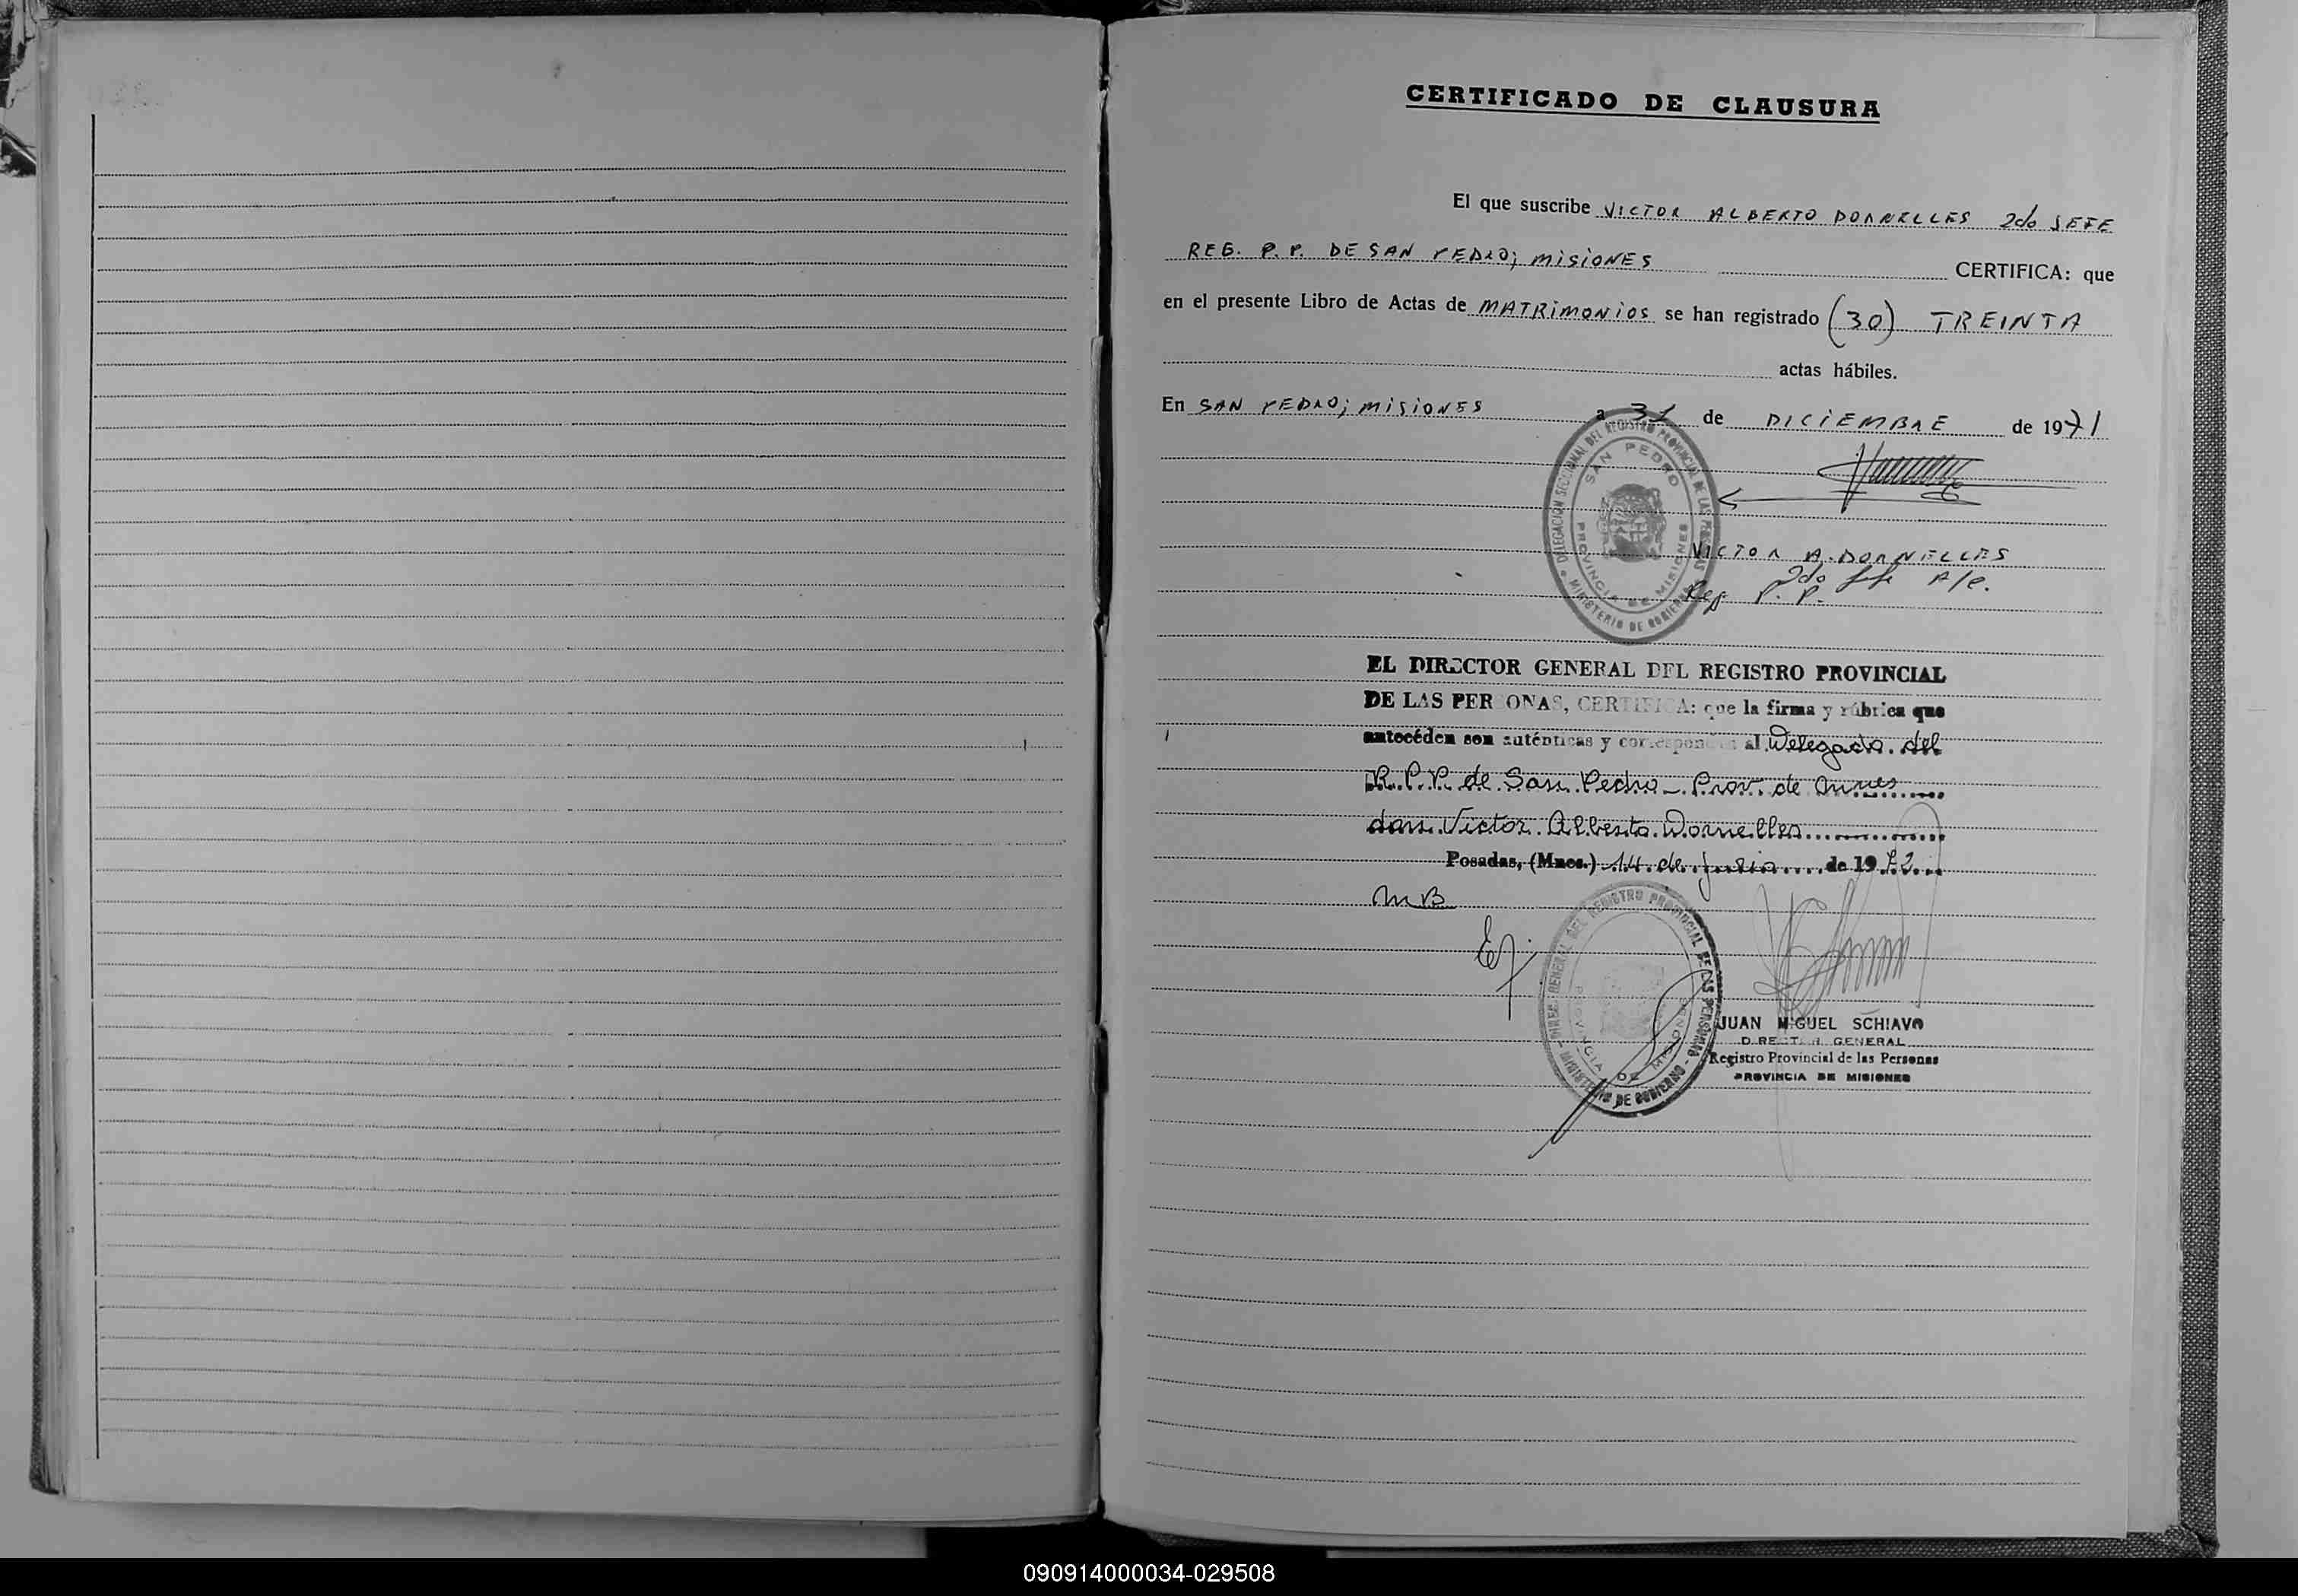 CERTIFICADO DE CLAUSURA
El que suscribe VICTOR ALBERTO DORNELLES 2do JEFE
REG. P. P. DE SAN PEDRO; MISIONES CERTIFICA: que
en el presente Libro de Actas de MATRIMONIOS se han registrado (30) TREINTA
actas hábiles.
En SAN PEDRO; MISIONES a 31 de DICIEMBRE de 1971
DELEGACION SECCIONAL DEL REGISTRO PROVINCIAL DE LAS PERSONAS
SAN PEDRO
PROVINCIA DE MISIONES
MINISTERIO DE GOBIERNO
VICTOR A. DORNELLES
2do Jefe A/C.
Reg. P. P.
EL DIRECTOR GENERAL DEL REGISTRO PROVINCIAL
DE LAS PERSONAS, CERTIFICA: que la firma y rúbrica que
antecéden son auténticas y corresponden al Delegado del
R.P.P. de San Pedro - Prov. de Mnes
don Victor Alberto Dornelles
Posadas, (Mnes.) 14 de Junio de 1972
MB
DIREC. GENERAL DEL REGISTRO PROVINCIAL DE LAS PERSONAS
PROVINCIA DE MISIONES
MINISTERIO DE GOBIERNO
JUAN MIGUEL SCHIAVO
DIRECTOR GENERAL
Registro Provincial de las Personas
PROVINCIA DE MISIONES
090914000034-029508